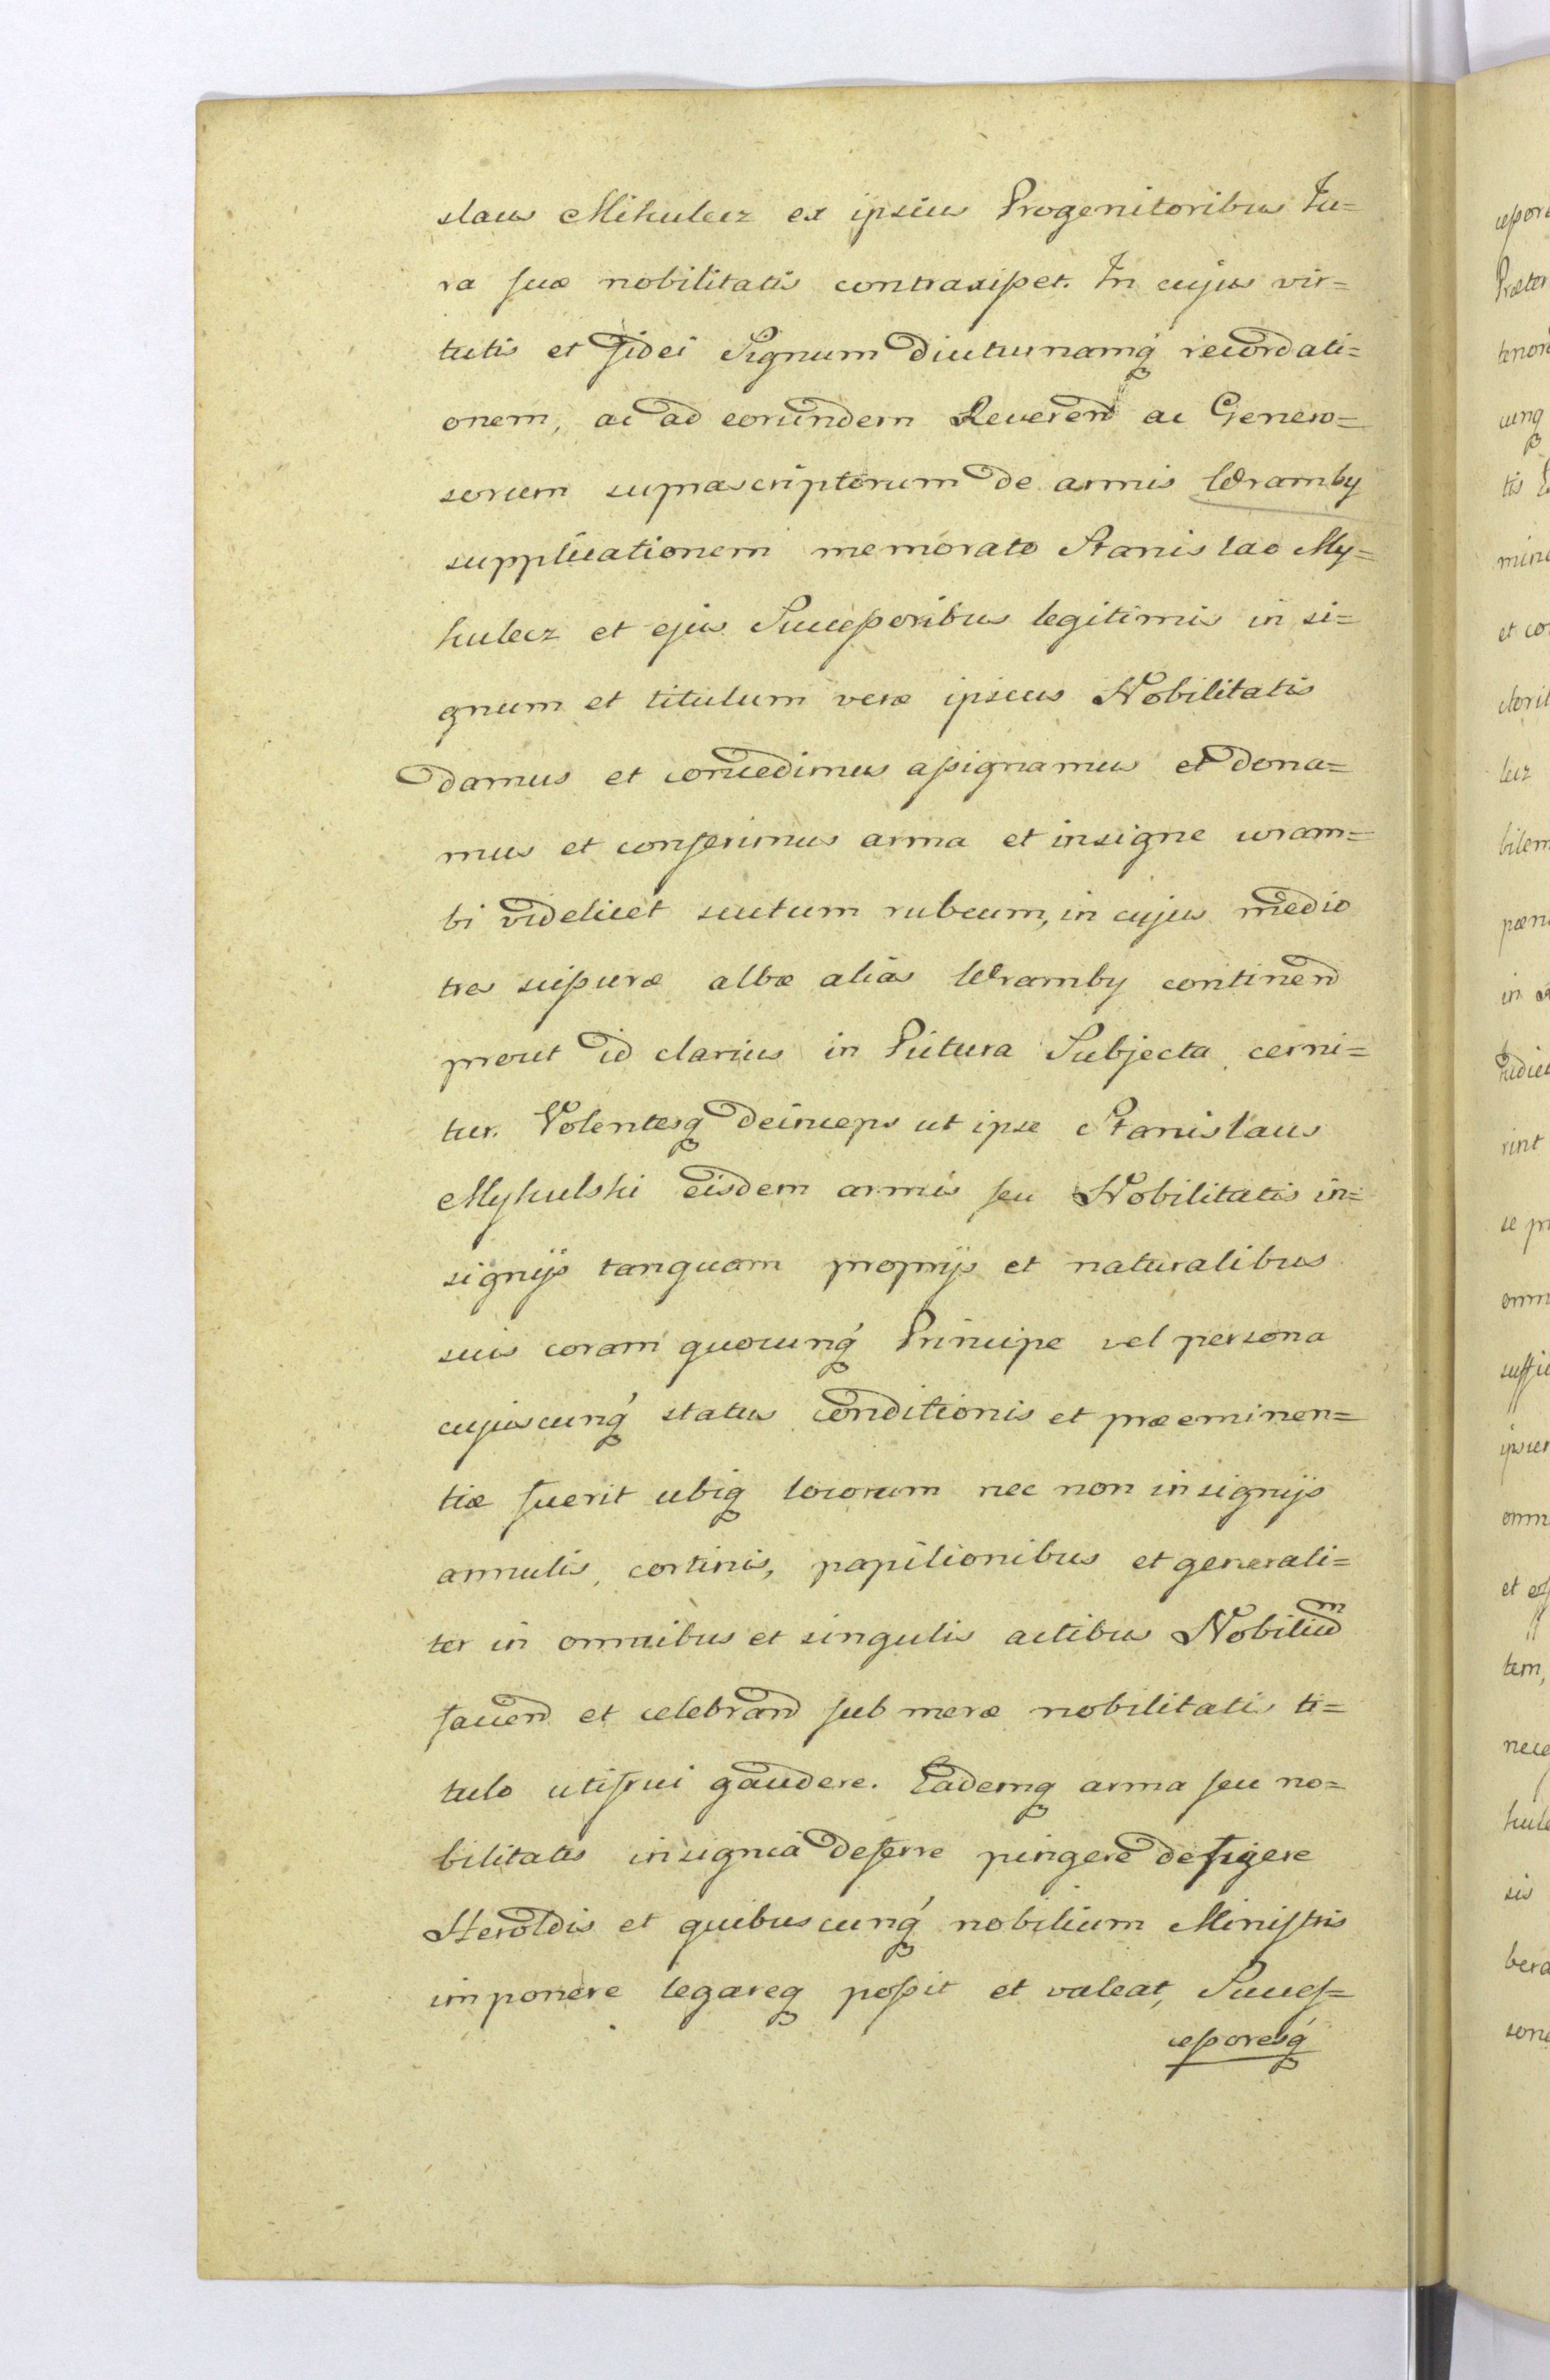 slaus Mikulecz ex ipsius Progenitoribus Ju=
ra suæ nobilitatis contraxisset. In cujus vir=
tutis et fidei Signum diuturnamq recordati=
onem, ac ad eorundem Reverend ac Genero=
sorum suprascriptorum de armis Wramby
supplicationem memorato Stanislao My=
kulecz et ejus Successoribus legitimis in si=
gnum et titulum veræ ipsius Nobilitatis
damus et concedimus assignamus et dona=
mus et conferimus arma et insigne wram=
bi videlicet scutum rubeum, in cujus medio
tres scissuræ albæ alias Wramby continend
prout id clarius in Pictura Subjecta cerni=
tur. Volentesq deinceps ut ipse Stanislaus
Mykulski eisdem armis seu Nobilitatis in=
signijs tanquam proprijs et naturalibus
suis coram quocunq Principe vel persona
cujuscunq status conditionis et præeminen=
tiæ fuerit ubiq locorum nec non insignijs
annulis, cortinis, papilionibus et generali=
ter in omnibus et singulis actibus Nobilium
favend et celebrand sub meræ nobilitatis ti=
tulo utifrui gaudere. Eademq arma seu no=
bilitatis insignia deferre pingere defigere
Heroldis et quibuscunq nobilium Ministris
imponere legareq possit et valeat, Succes=
cessoresq